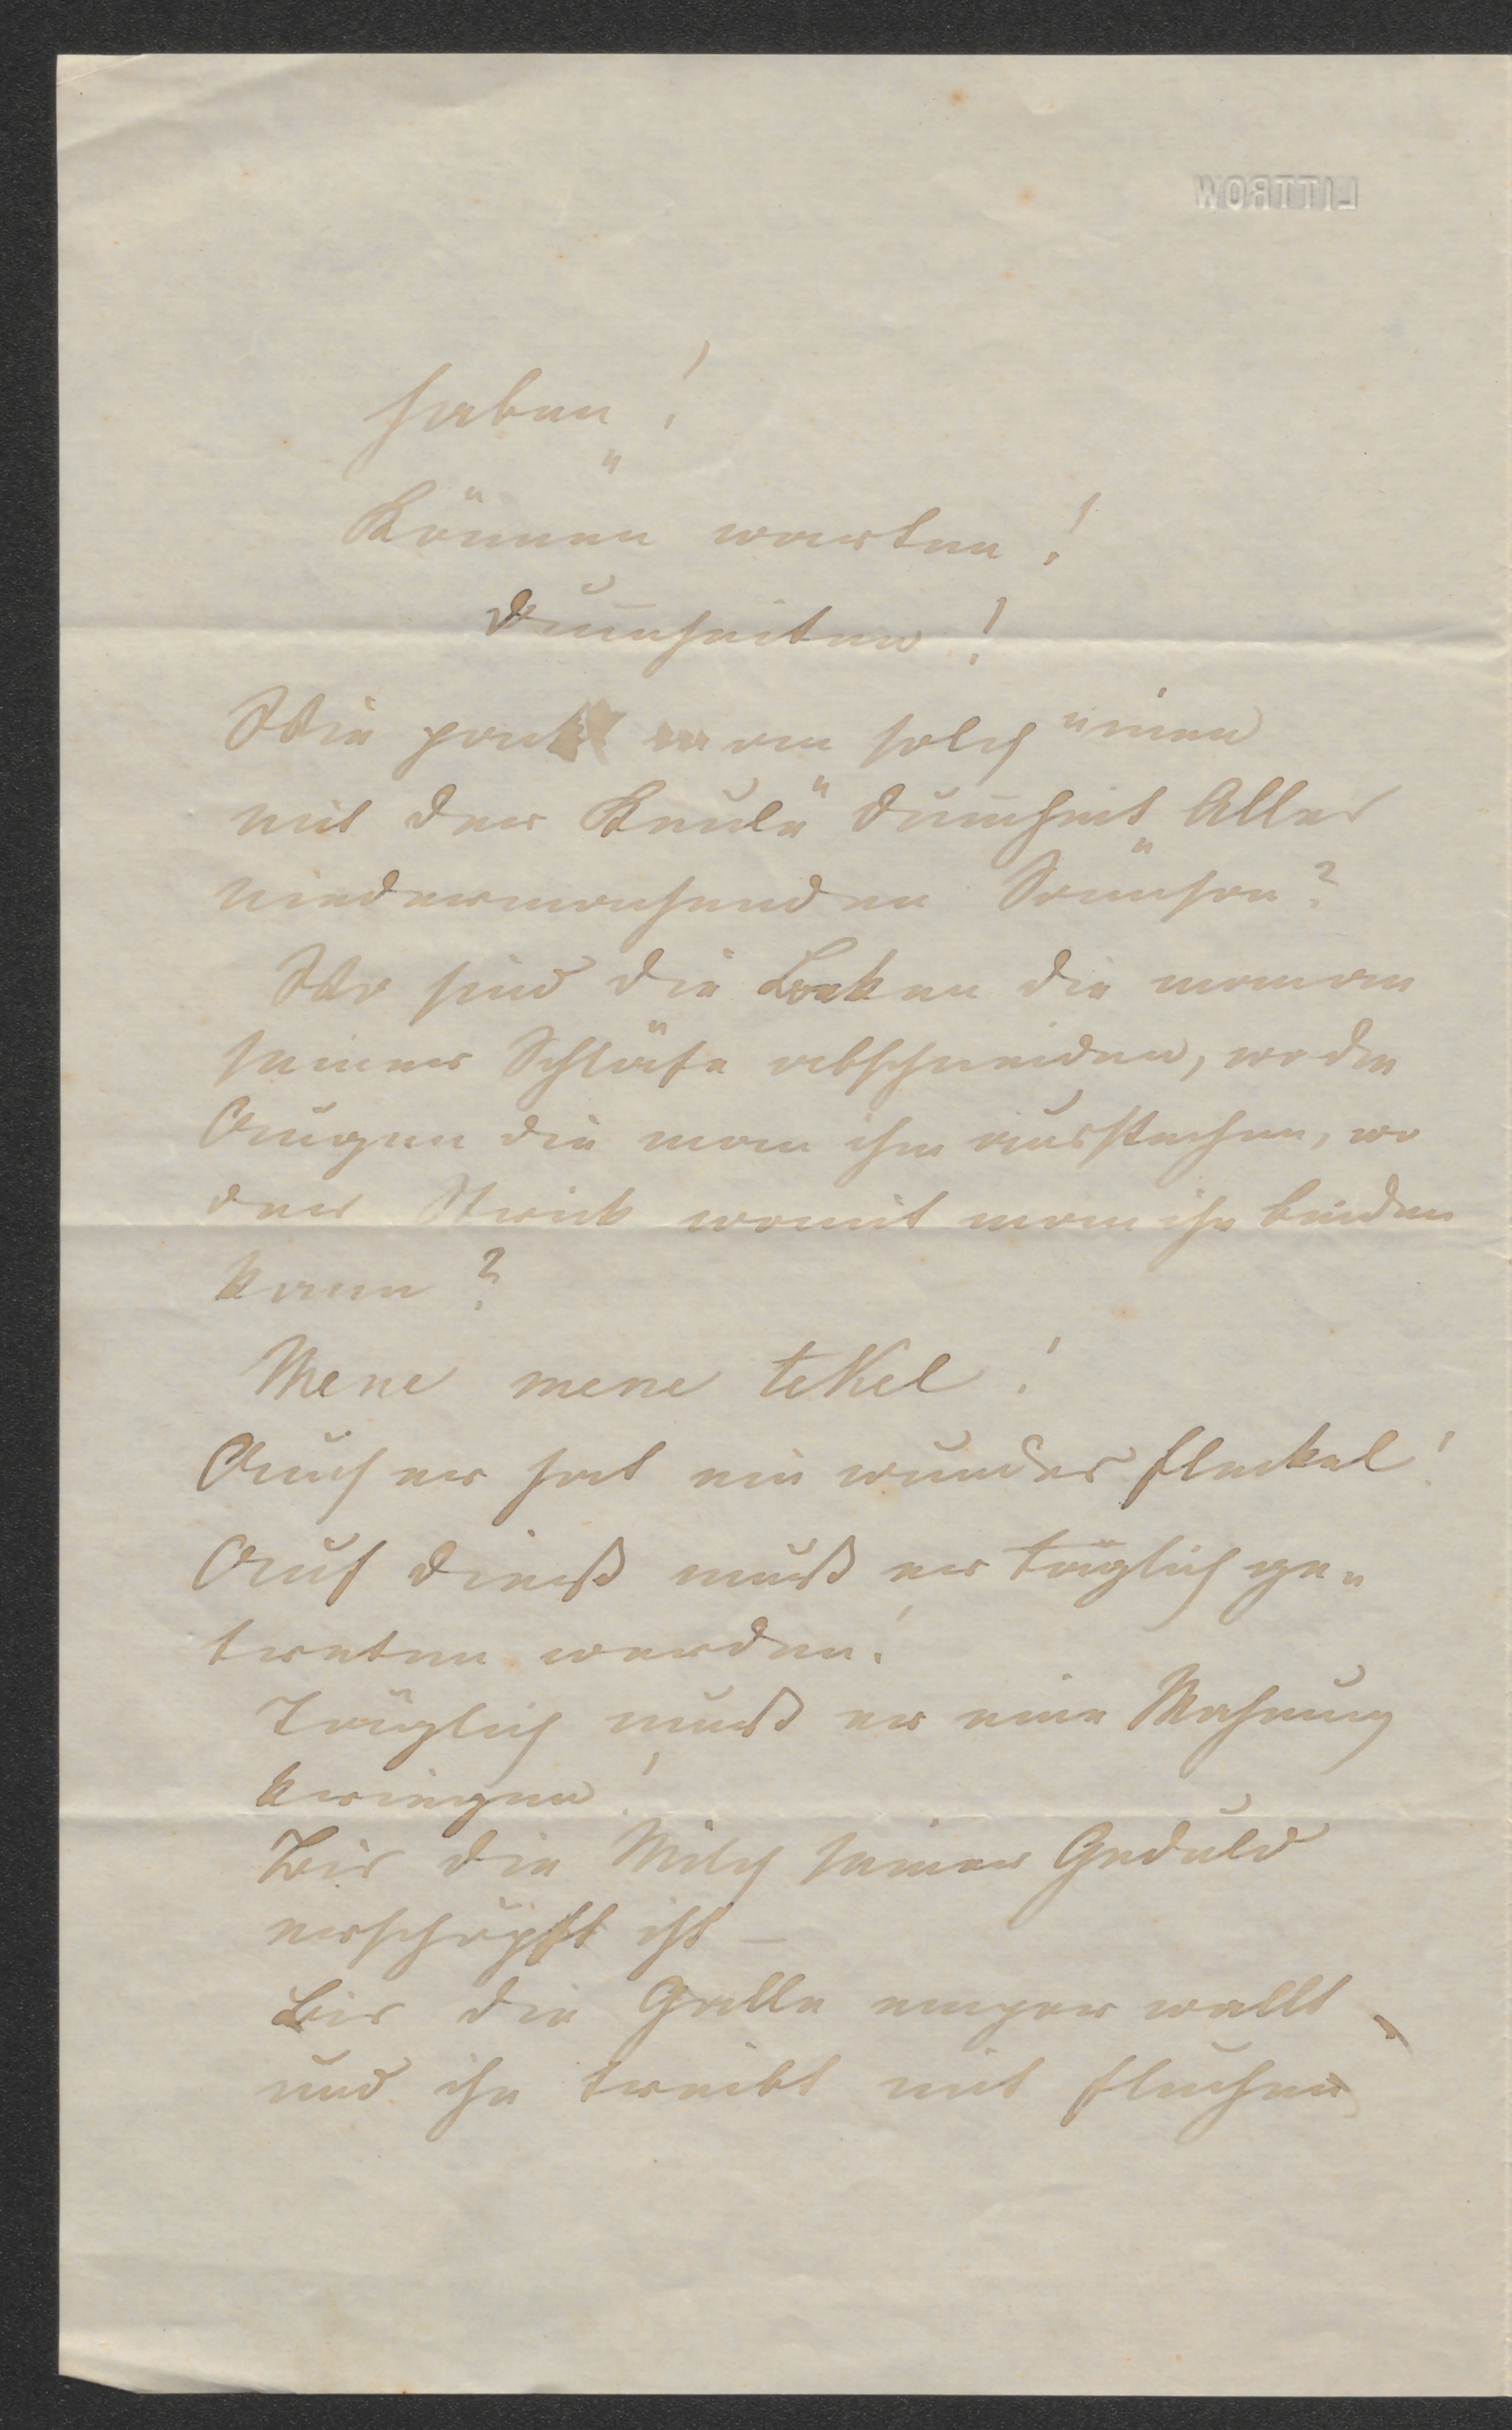 LITTROW
haben"!
Können warten!
Dum̅heiten!
Wie packt man solch einen
mit der Keule "Dum̅heit" Alles
niedermachenden Sam̅son?
Wo sind die Locken die man am
seiner Schläfe abschneiden, wo die
Augen die man ihm ausstechen, wo
der Strick womit man ihn binden
kann?
Mene mene teKel!
Auch er hat ein wundes Fleckel!
Auf dieß muß er täglich ge-
treten werden!
Täglich muß er eine Mahnung
kriegen!
Bis die Milch seiner Geduld
erschöpft ist –
Bis die Galle empor wallt
und ihn treibt mit Fluchen